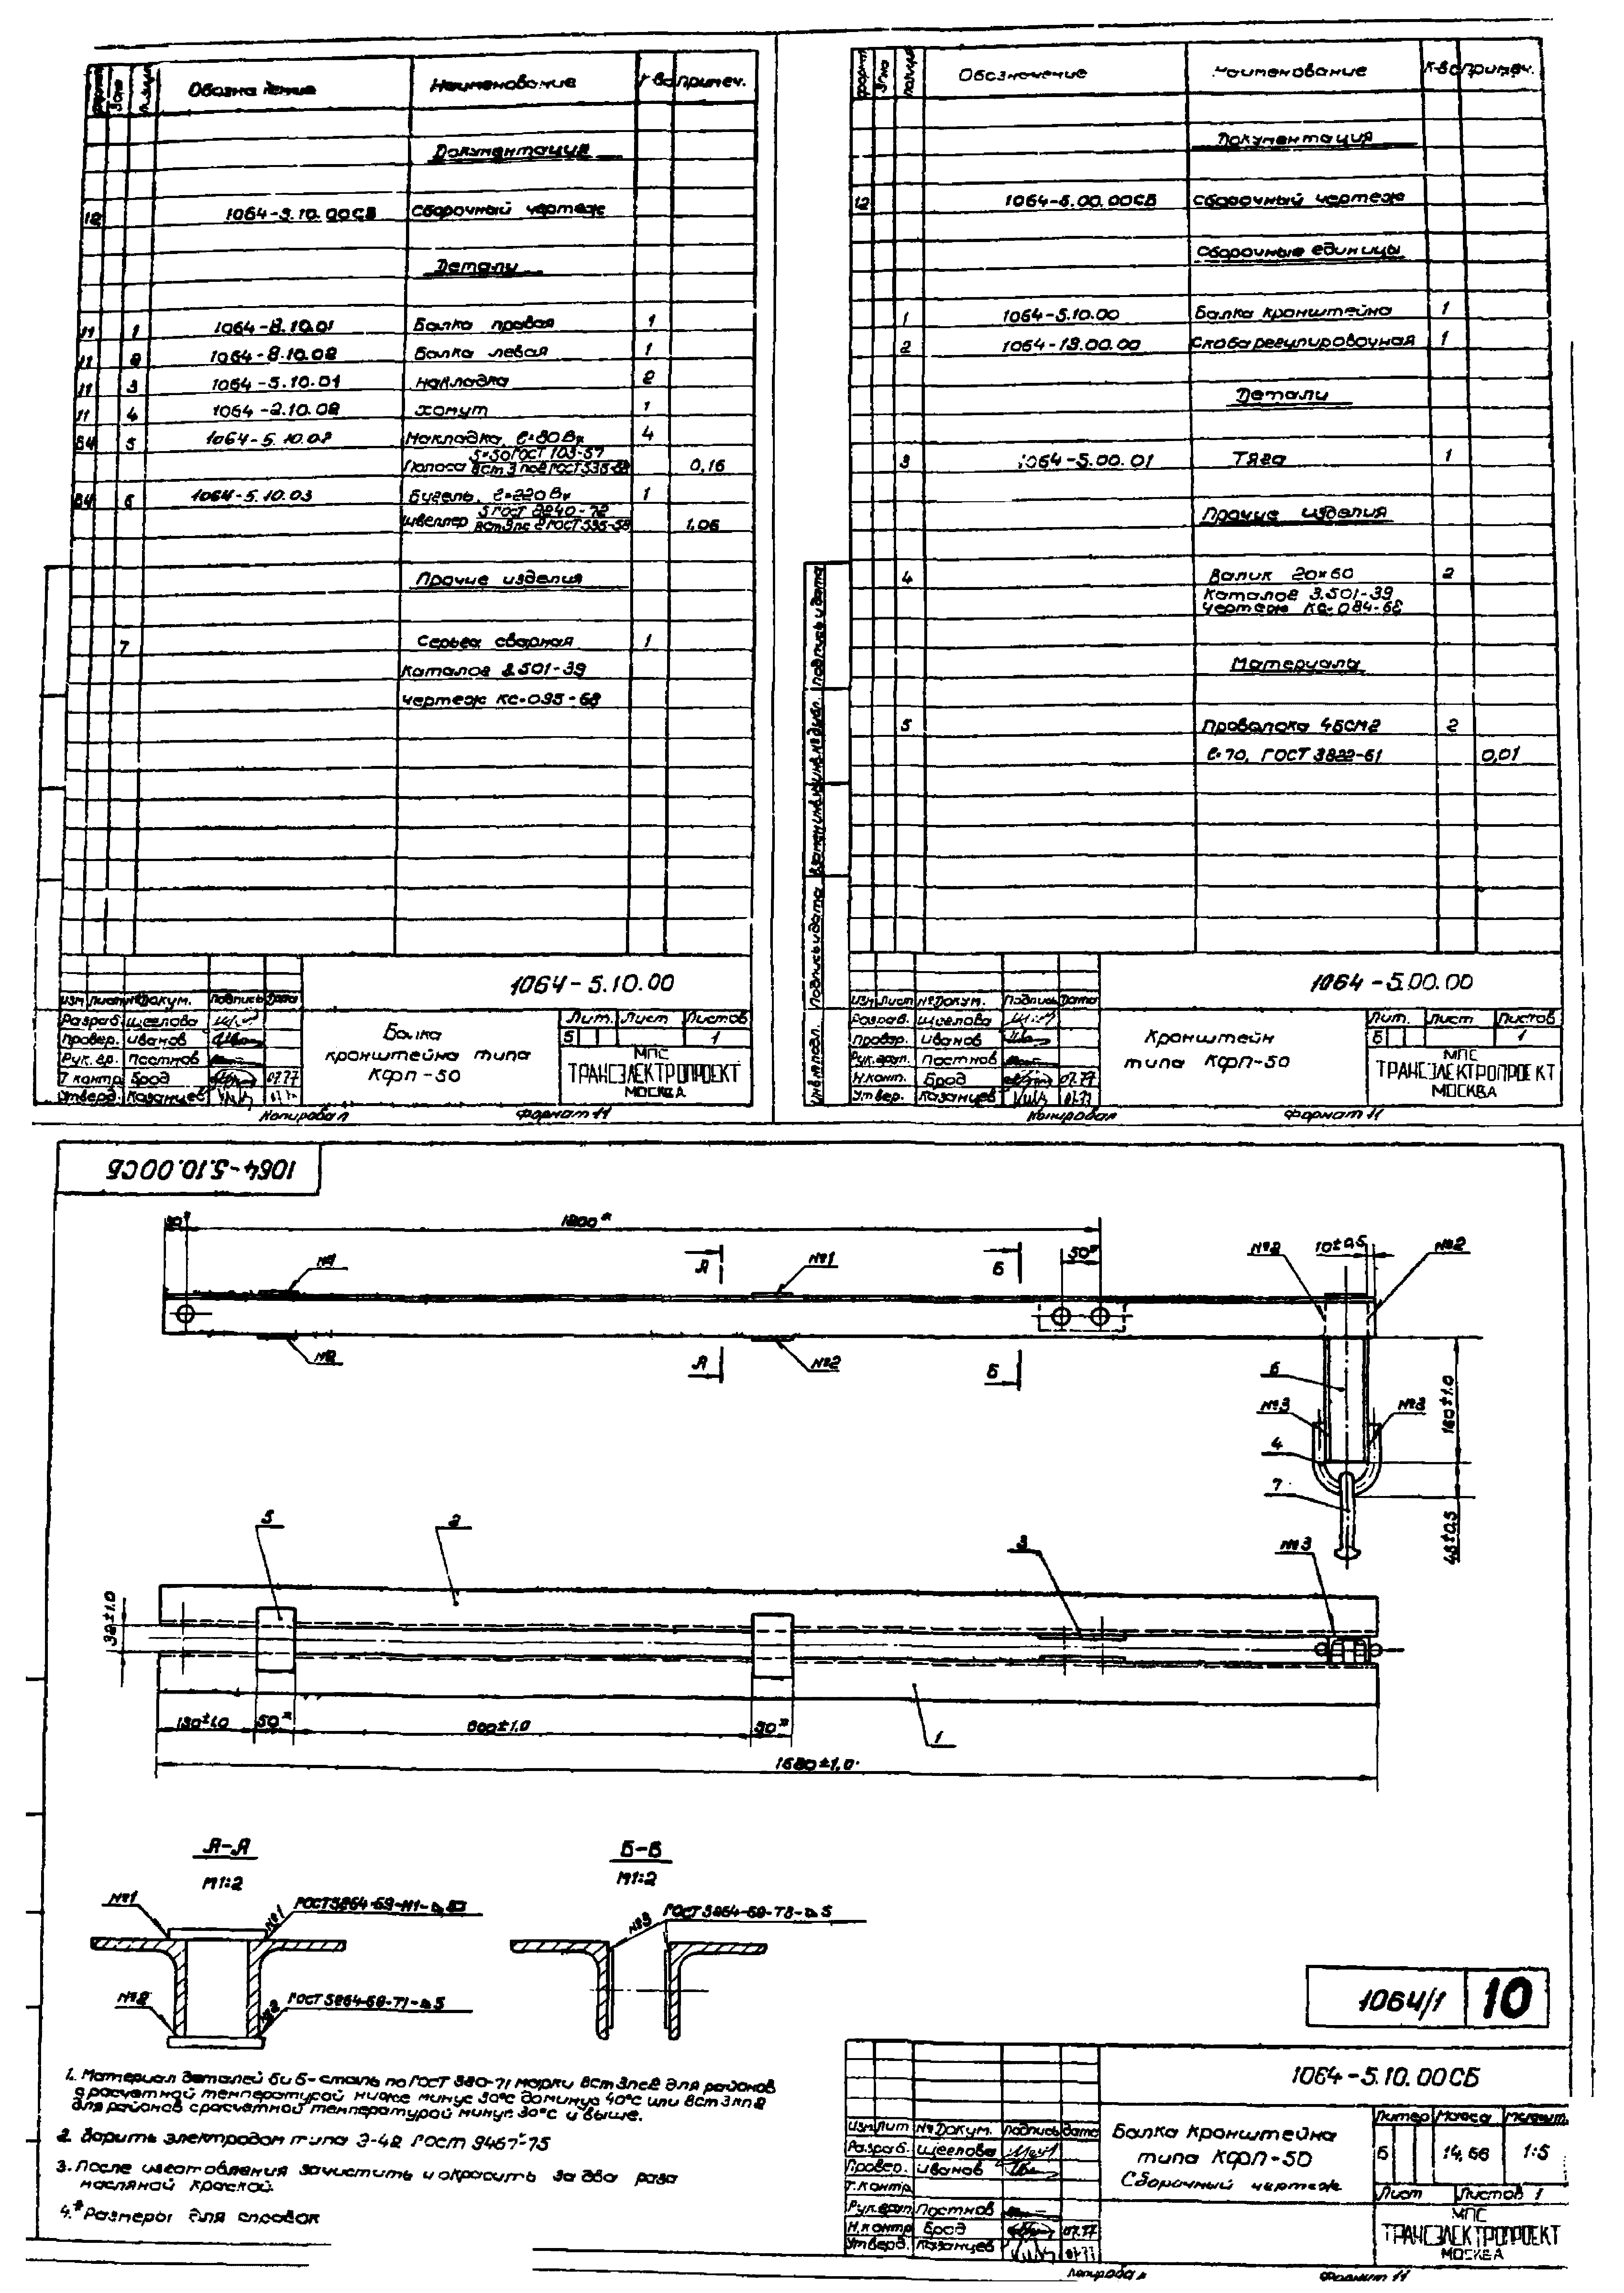 Обозначение Наименование К-во примеч.
Документация
12 1064-5.10.00СБ Сборочный чертеж
Детали
11 1 1064-8.10.01 Балка правая 1
11 2 1064-8.10.02 Балка левая 1
11 3 1064-5.10.01 Накладка 2
11 4 1064-2.10.02 Хомут 1
Б4 5 1064-5.10.02 Накладка, ℓ=80 4
Полоса 5×50 ГОСТ 103-57 0,16
Б4 6 1064-5.10.03 Бугель, ℓ=220 1
Швеллер 5 ГОСТ 8240-72 1,06
Прочие изделия
7 Серьга сварная 1
Каталог 3.501-39
чертеж КС-095-68
1064-5.10.00
Изм Лист №Докум. Подпись Дата
Разраб. Щеглова
Провер. Иванов
Рук. гр. Постнов
Т контр. Брод 07.77
Утверд. Казанцев
Балка
кронштейна типа
КФП-50
Лит. Лист Листов
Б 1
МПС
ТРАНСЭЛЕКТРОПРОЕКТ
МОСКВА
Копировал Формат 11
формат Зона позиция Обозначение Наименование К-во примеч.
Документация
12 1064-5.00.00СБ Сборочный чертеж
Сборочные единицы
1 1064-5.10.00 Балка кронштейна 1
2 1064-13.00.00 Скоба регулировочная 1
Детали
3 1064-5.00.01 Тяга 1
Прочие изделия
4 Валик 20×60 2
Каталог 3.501-39
чертеж КС-084-68
Материалы
5 Проволока 4БСМ2 2
ℓ=70, ГОСТ 3822-61 0,01
Подпись и дата
Подпись и дата
Инв.№подл.
1064-5.00.00
Изм Лист №Докум. Подпись Дата
Разраб. Щеглова
Провер. Иванов
Рук.груп. Постнов
Н.конт. Брод 07.77
Утвер. Казанцев
Кронштейн
типа КФП-50
Лит. Лист Листов
Б 1
МПС
ТРАНСЭЛЕКТРОПРОЕКТ
МОСКВА
Копировал Формат 11
1064-5.10.00СБ
30* 1200*
№1 А №1 Б 50* №2 10±0,5 №2
№2 А №2 Б 6
№3 №3
4
7
160±1.0
48±0,5
5 2 3 №3
32±1.0
130±1.0 50* 600±1.0 50* 1
1680±1.0
А-А
М1:2
Б-Б
М1:2
№1 №1
№3 ГОСТ 5264-69-Т3-⊿5
№2 №2 ГОСТ 5264-69-Т1-⊿5
1064/1 10
1. Материал деталей 5 и 6 - сталь по ГОСТ 380-71 марки ВСт3пс2 для районов
с расчетной температурой ниже минус 30°С до минус 40°С или ВСт3кп2
для районов с расчетной температурой минус 30°С и выше.
2. Варить электродом типа Э-42 ГОСТ 9467-75
3. После изготовления зачистить и окрасить за два раза
масляной краской.
4.* Размеры для справок
1064-5.10.00СБ
Изм Лит №Докум. Подпись Дата
Разраб. Щеглова
Провер. Иванов
Т.контр.
Рук.груп. Постнов
Н.контр. Брод 07.77
Утверд. Казанцев
Балка кронштейна
типа КФП-50
Сборочный чертеж
Литер Масса Масшт.
Б 14,66 1:5
Лист Листов 1
МПС
ТРАНСЭЛЕКТРОПРОЕКТ
МОСКВА
Копировал Формат 11